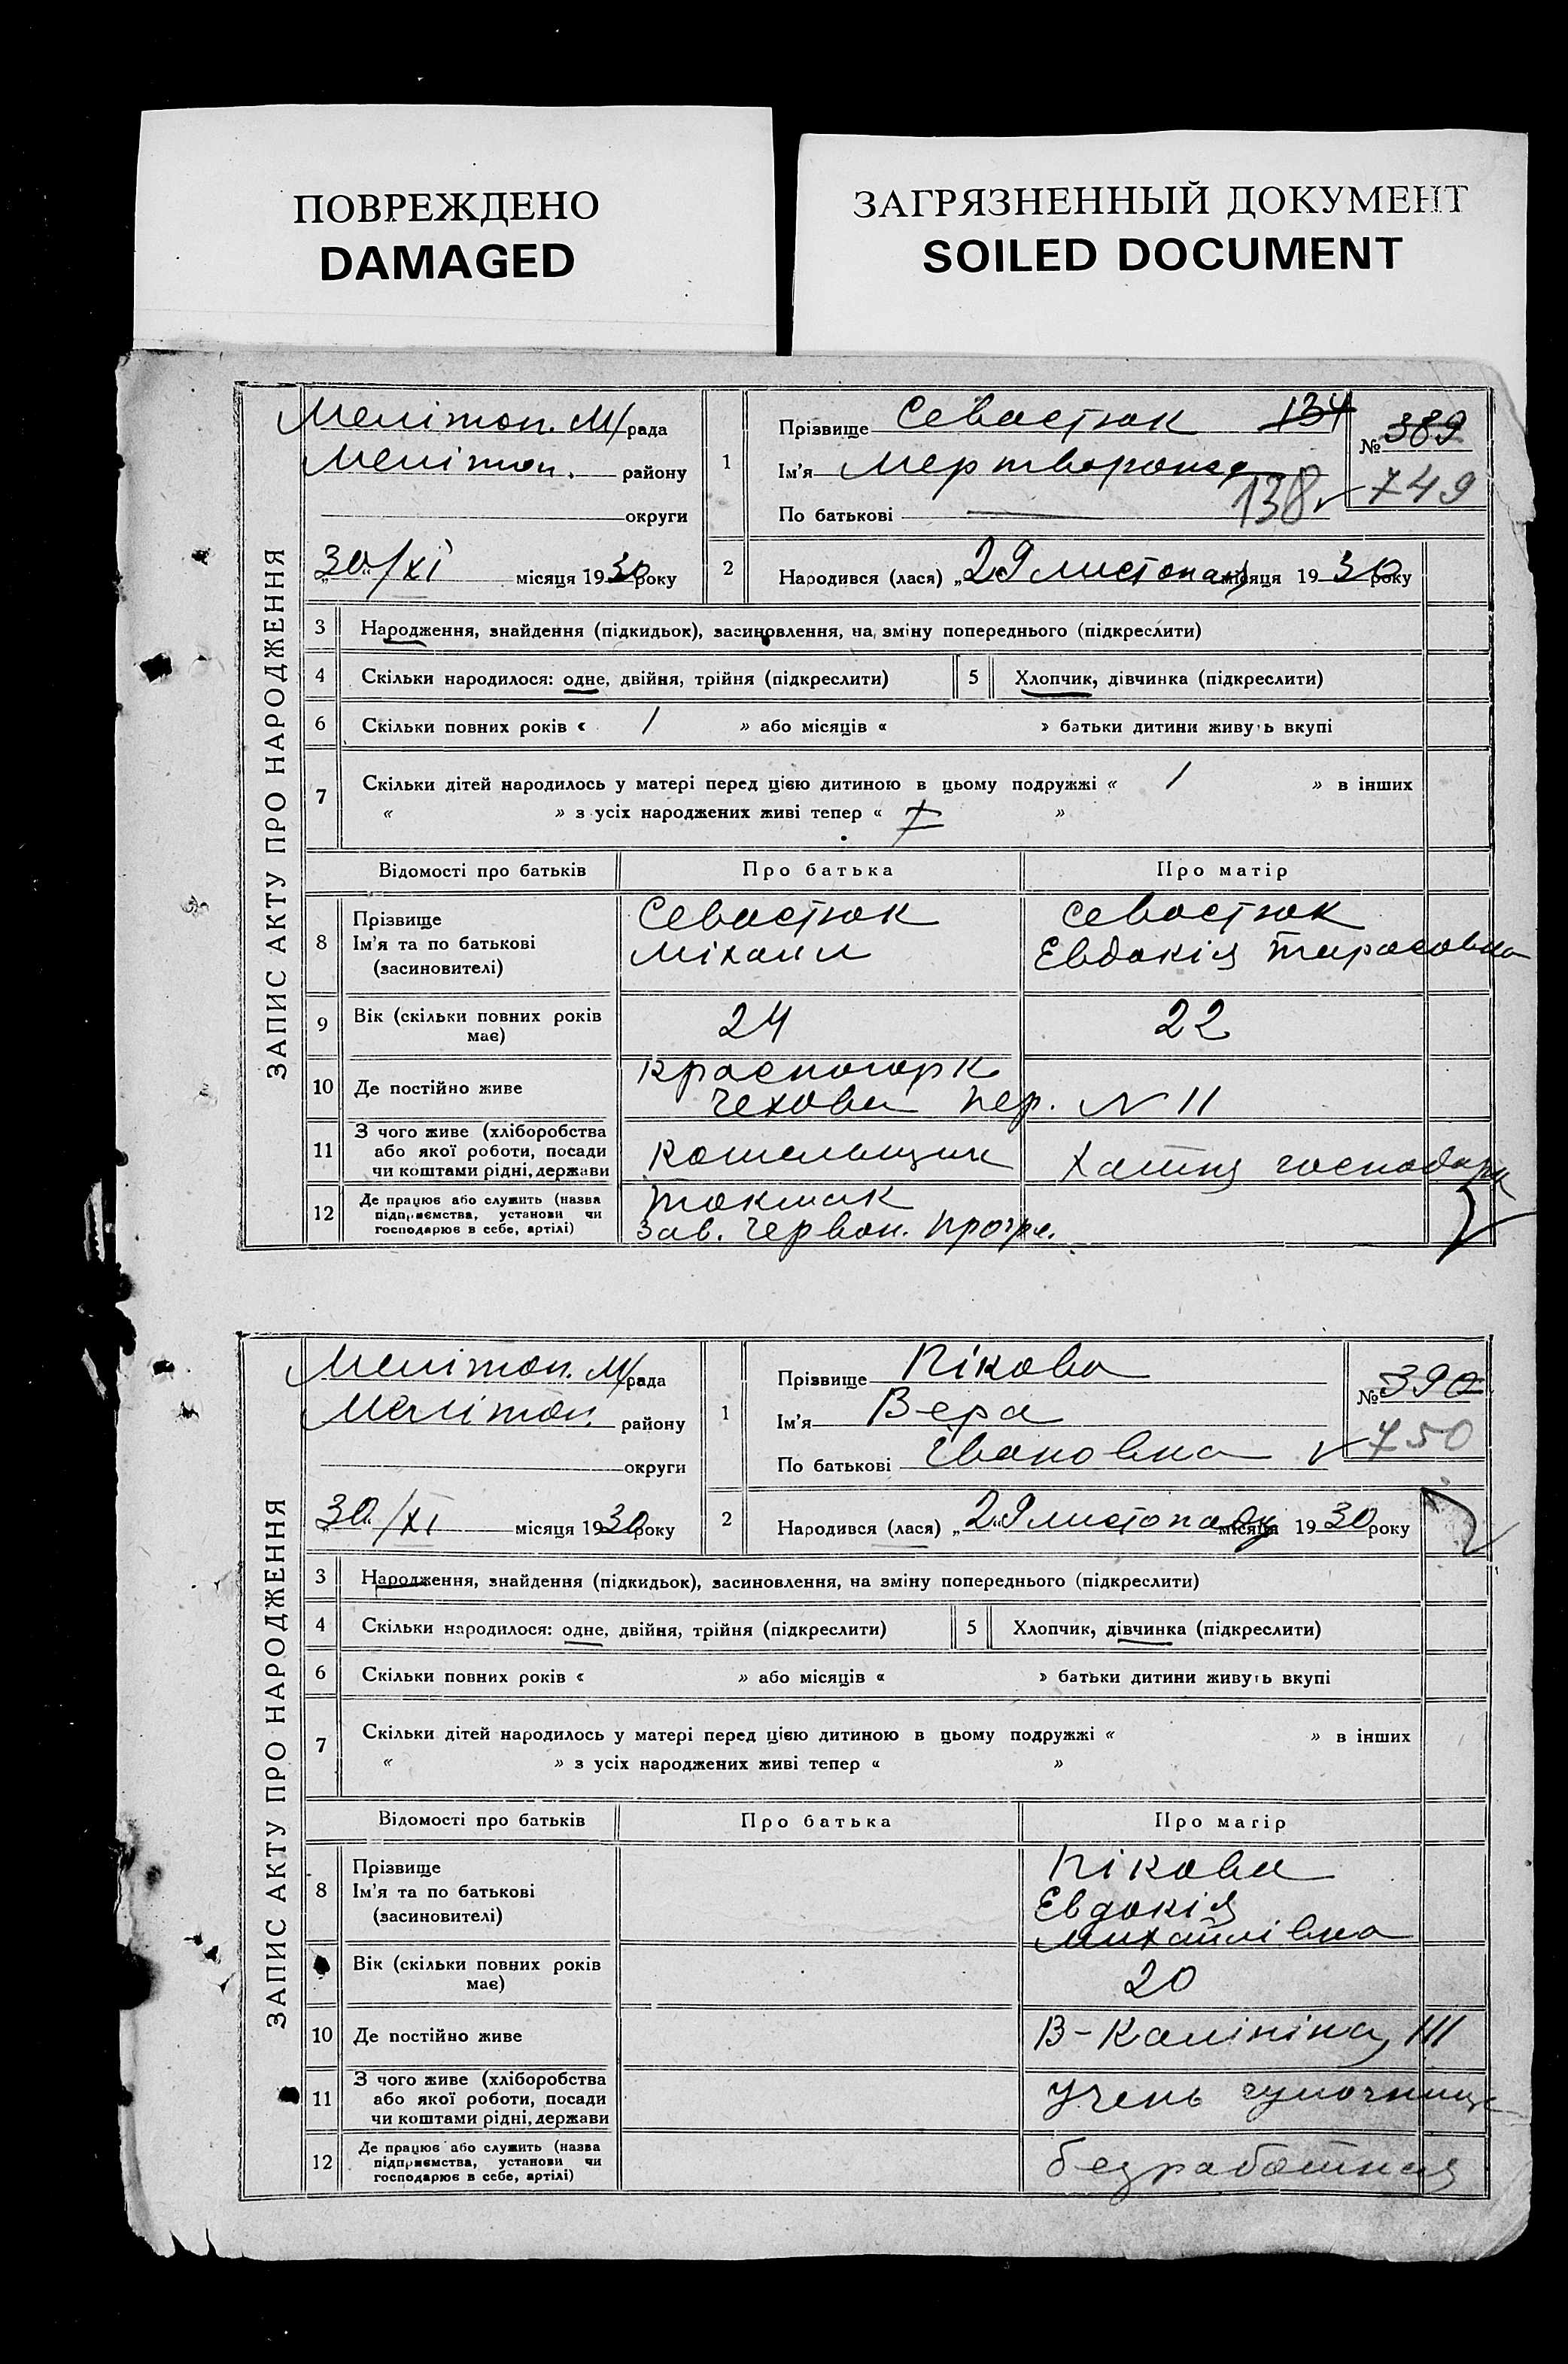 ПОВРЕЖДЕНО
DAMAGED
ЗАГРЯЗНЕННЫЙ ДОКУМЕНТ
SOILED DOCUMENT
ЗАПИС АКТУ ПРО НАРОДЖЕННЯ
Мелітоп. М/рада
Мелітоп. району
округи
30/XI місяця 1930 року
1 Прізвище Севастюк 134
Ім'я Мертворожд
По батькові — 138
№ 389
749
2 Народився (лася) „29 листопад місяця 1930 року
3 Народження, знайдення (підкидьок), засиновлення, на зміну попереднього (підкреслити)
4 Скільки народилося: одне, двійня, трійня (підкреслити) 5 Хлопчик, дівчинка (підкреслити)
6 Скільки повних років « 1 » або місяців « » батьки дитини живуть вкупі
7 Скільки дітей народилось у матері перед цією дитиною в цьому подружжі « 1 » в інших
« » з усіх народжених живі тепер « »
Відомості про батьків Про батька Про матір
8 Прізвище Севастюк Севастюк
Ім'я та по батькові Міхаил Евдокія Тарасовна
(засиновителі)
9 Вік (скільки повних років має) 24 22
10 Де постійно живе Красногорк
Чехова пер. N 11
11 З чого живе (хліборобства
або якої роботи, посади
чи коштами рідні, держави Хатня господарк
12 Де працює або служить (назва
підприємства, установи чи
господарює в себе, артілі) Токмак
Зав. Червон. Прогре.
ЗАПИС АКТУ ПРО НАРОДЖЕННЯ
Мелітоп. М/рада
Мелітоп. району
округи
30/XI місяця 1930 року
1 Прізвище Пікова
Ім'я Вера
По батькові Івановна
№ 390
750
2 Народився (лася) „29 листопаду місяця 1930 року
3 Народження, знайдення (підкидьок), засиновлення, на зміну попереднього (підкреслити)
4 Скільки народилося: одне, двійня, трійня (підкреслити) 5 Хлопчик, дівчинка (підкреслити)
6 Скільки повних років « » або місяців « » батьки дитини живуть вкупі
7 Скільки дітей народилось у матері перед цією дитиною в цьому подружжі « » в інших
« » з усіх народжених живі тепер « »
Відомості про батьків Про батька Про матір
8 Прізвище Пікова
Ім'я та по батькові Евдокія
(засиновителі) Михайлівна
Вік (скільки повних років має) 20
10 Де постійно живе В-Калініна, 111
11 З чого живе (хліборобства
або якої роботи, посади
чи коштами рідні, держави Учень
12 Де працює або служить (назва
підприємства, установи чи
господарює в себе, артілі) безработная